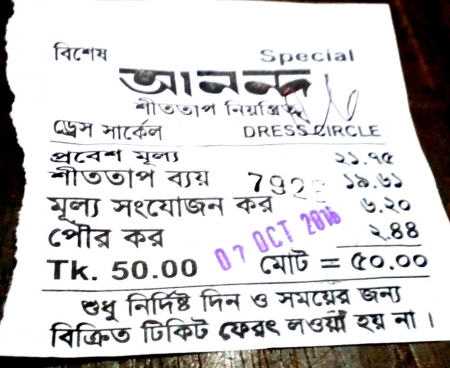 বিশেষ Special
আনন্দ
শীততাপ নিয়ন্ত্রিত
ড্রেস সার্কেল DRESS CIRCLE
প্রবেশ মূল্য ২১.৭৫
শীততাপ ব্যয় ১৯.৬১
মূল্য সংযোজন কর ৬.২০
পৌর কর 07 OCT 2016 ২.৪৪
Tk. 50.00 মোট = ৫০.০০
শুধু নির্দিষ্ট দিন ও সময়ের জন্য
বিক্রিত টিকিট ফেরৎ লওয়া হয় না ।